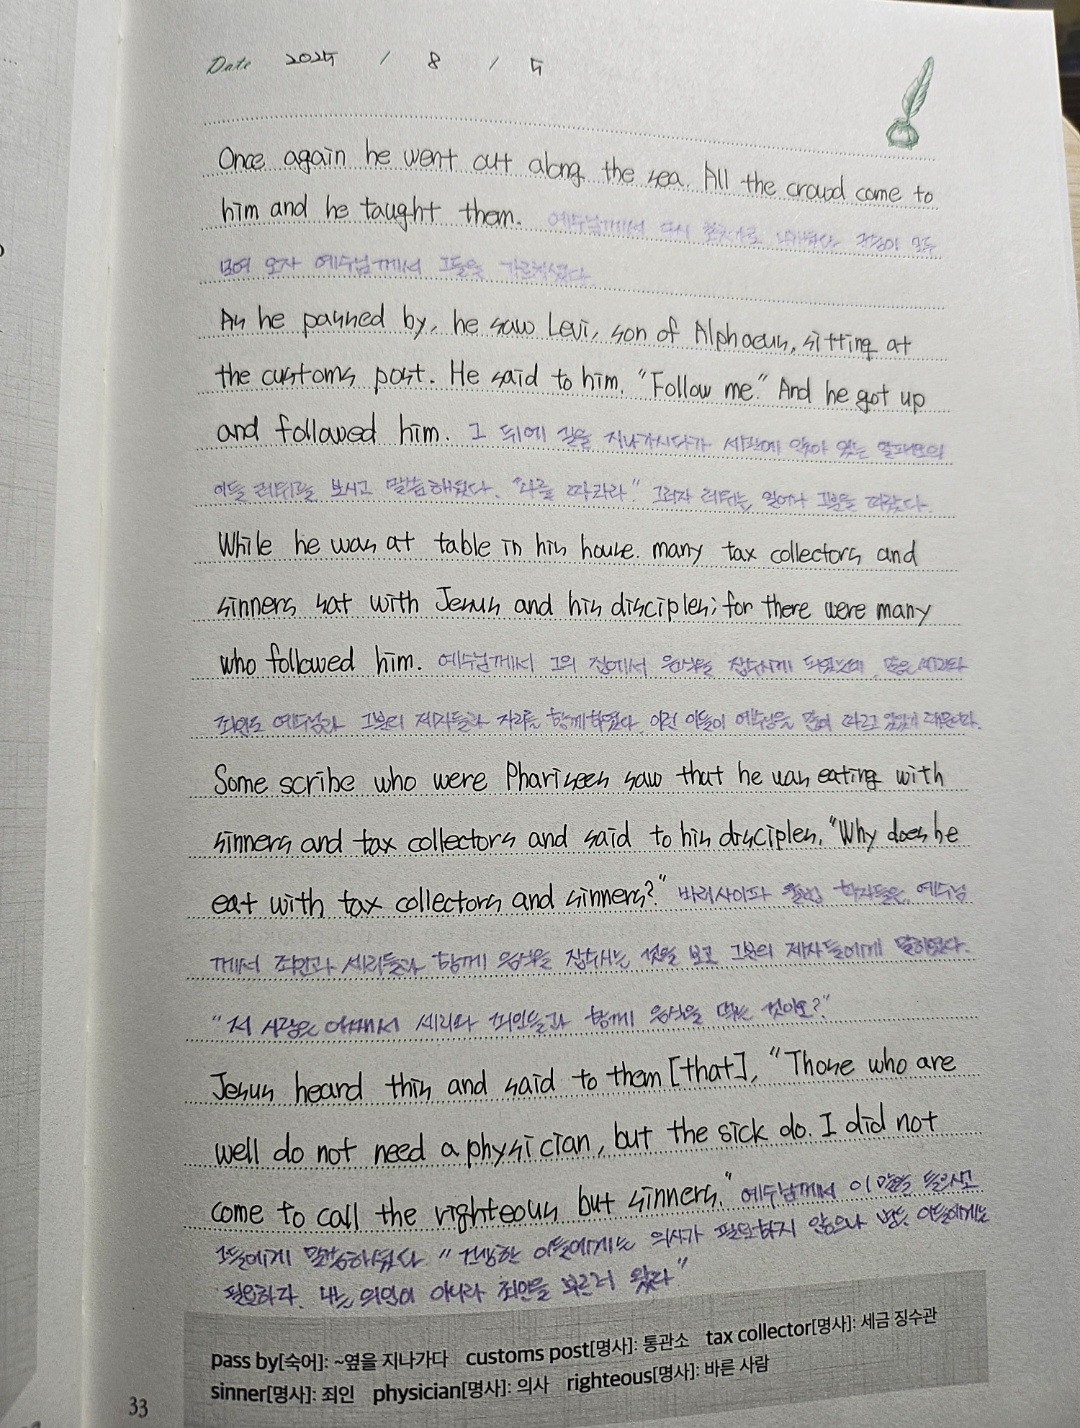 Date 2025 / 8 / 5
Once again he went out along the sea. All the crowd came to
him and he taught them. 예수님께서 다시 호숫가로 나가셨다. 군중이 모두
모여 오자 예수님께서 그들을 가르치셨다.
As he passed by, he saw Levi, son of Alphaeus, sitting at
the customs post. He said to him, "Follow me." And he got up
and followed him. 그 뒤에 길을 지나가시다가 세관에 앉아 있는 알패오의
아들 레위를 보시고 말씀하셨다. "나를 따라라." 그러자 레위는 일어나 그분을 따랐다.
While he was at table in his house, many tax collectors and
sinners sat with Jesus and his disciples; for there were many
who followed him. 예수님께서 그의 집에서 음식을 잡수시게 되었는데, 많은 세리와
죄인도 예수님과 그분의 제자들과 자리를 함께하였다. 이런 이들이 예수님을 많이 따르고 있었기 때문이다.
Some scribe who were Pharisees saw that he was eating with
sinners and tax collectors and said to his disciples, "Why does he
eat with tax collectors and sinners?" 바리사이파 율법 학자들은, 예수님
께서 죄인과 세리들과 함께 음식을 잡수시는 것을 보고 그분의 제자들에게 말하였다.
"저 사람은 어째서 세리와 죄인들과 함께 음식을 먹는 것이오?"
Jesus heard this and said to them [that], "Those who are
well do not need a physician, but the sick do. I did not
come to call the righteous but sinners." 예수님께서 이 말을 들으시고
그들에게 말씀하셨다 "건강한 이들에게는 의사가 필요하지 않으나 병든 이들에게는
필요하다. 나는 의인이 아니라 죄인을 부르러 왔다"
pass by[숙어]: ~옆을 지나가다 customs post[명사]: 통관소 tax collector[명사]: 세금 징수관
sinner[명사]: 죄인 physician[명사]: 의사 righteous[명사]: 바른 사람
33